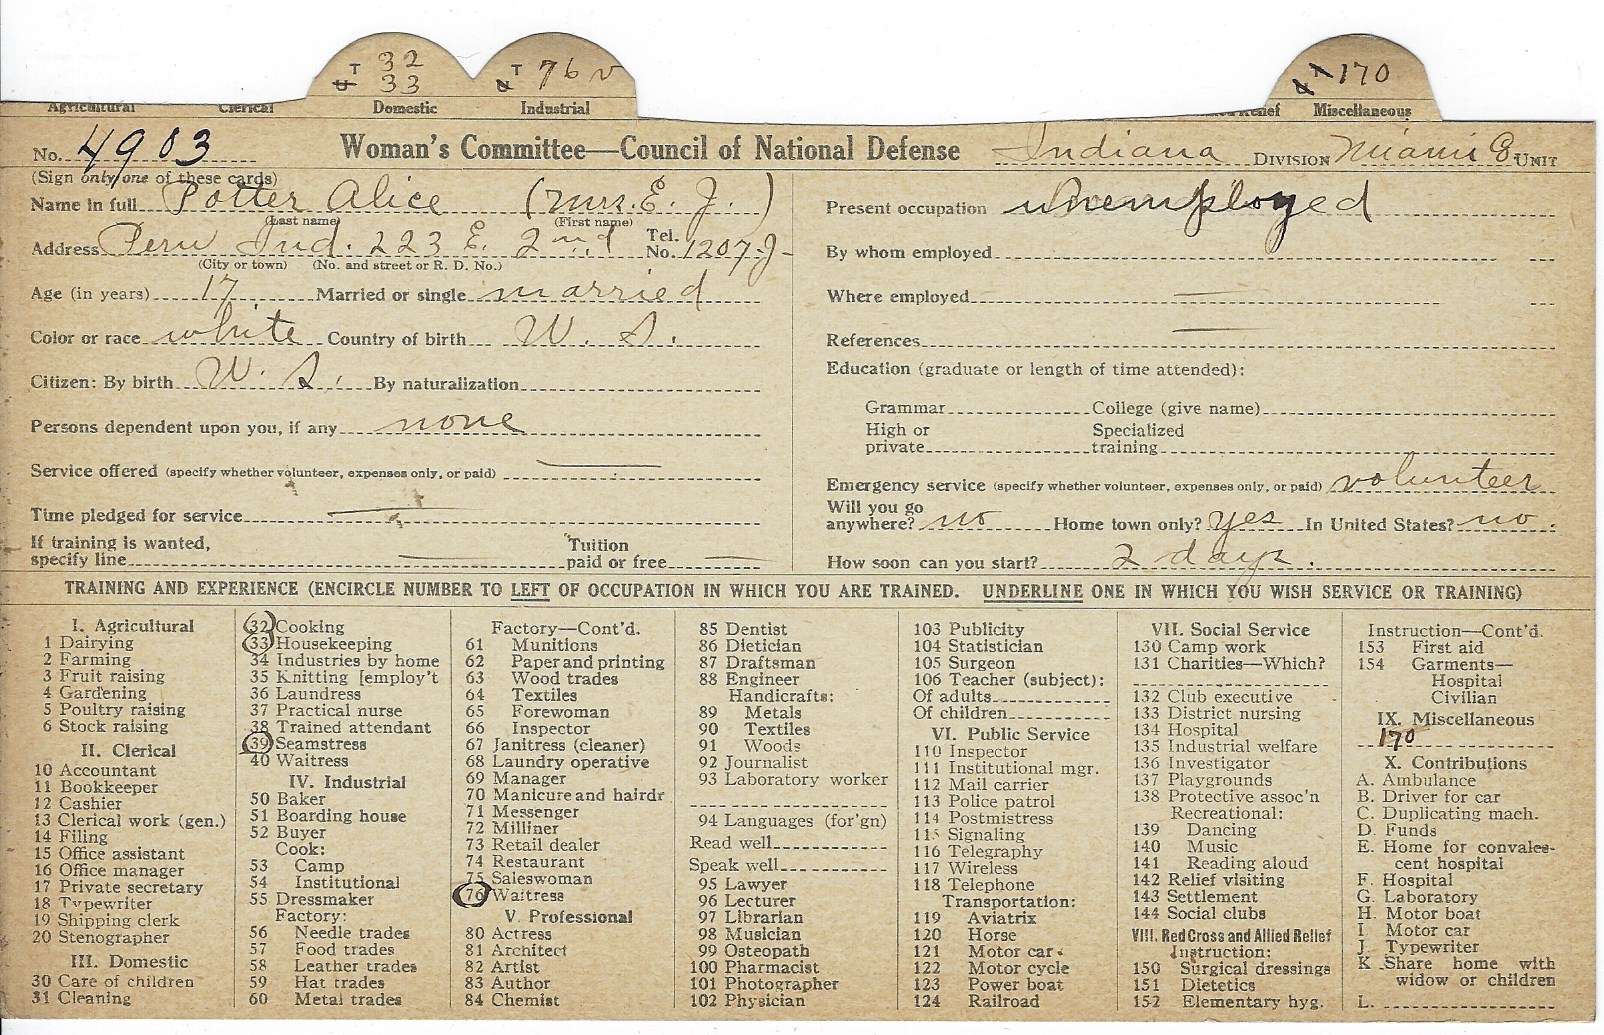 T 32
33
T 76 v
170
Agricultural Clerical Domestic Industrial Relief Miscellaneous
No. 4983 Woman's Committee—Council of National Defense Indiana DIVISION Miami Co UNIT
(Sign only one of these cards)
Name in full Potter Alice (Mrs. E. J.)
(Last name) (First name)
Address Peru Ind. 223 E. 2nd Tel. No. 1207-J
(City or town) (No. and street or R. D. No.)
Age (in years) 17 Married or single married
Color or race white Country of birth U. S.
Citizen: By birth U. S. By naturalization
Persons dependent upon you, if any none
Service offered (specify whether volunteer, expenses only, or paid)
Time pledged for service
If training is wanted,
specify line
Tuition
paid or free
Present occupation unemployed
By whom employed
Where employed
References
Education (graduate or length of time attended):
Grammar College (give name)
High or
private
Specialized
training
Emergency service (specify whether volunteer, expenses only, or paid) volunteer
Will you go
anywhere? no Home town only? yes In United States? no.
How soon can you start? 2 days.
TRAINING AND EXPERIENCE (ENCIRCLE NUMBER TO LEFT OF OCCUPATION IN WHICH YOU ARE TRAINED. UNDERLINE ONE IN WHICH YOU WISH SERVICE OR TRAINING)
I. Agricultural
1 Dairying
2 Farming
3 Fruit raising
4 Gardening
5 Poultry raising
6 Stock raising
II. Clerical
10 Accountant
11 Bookkeeper
12 Cashier
13 Clerical work (gen.)
14 Filing
15 Office assistant
16 Office manager
17 Private secretary
18 Typewriter
19 Shipping clerk
20 Stenographer
III. Domestic
30 Care of children
31 Cleaning
32 Cooking
33 Housekeeping
34 Industries by home
35 Knitting [employ't
36 Laundress
37 Practical nurse
38 Trained attendant
39 Seamstress
40 Waitress
IV. Industrial
50 Baker
51 Boarding house
52 Buyer
Cook:
53 Camp
54 Institutional
55 Dressmaker
Factory:
56 Needle trades
57 Food trades
58 Leather trades
59 Hat trades
60 Metal trades
Factory—Cont'd.
61 Munitions
62 Paper and printing
63 Wood trades
64 Textiles
65 Forewoman
66 Inspector
67 Janitress (cleaner)
68 Laundry operative
69 Manager
70 Manicure and hairdr
71 Messenger
72 Milliner
73 Retail dealer
74 Restaurant
75 Saleswoman
76 Waitress
V. Professional
80 Actress
81 Architect
82 Artist
83 Author
84 Chemist
85 Dentist
86 Dietician
87 Draftsman
88 Engineer
Handicrafts:
89 Metals
90 Textiles
91 Woods
92 Journalist
93 Laboratory worker
94 Languages (for'gn)
Read well
Speak well
95 Lawyer
96 Lecturer
97 Librarian
98 Musician
99 Osteopath
100 Pharmacist
101 Photographer
102 Physician
103 Publicity
104 Statistician
105 Surgeon
106 Teacher (subject):
Of adults
Of children
VI. Public Service
110 Inspector
111 Institutional mgr.
112 Mail carrier
113 Police patrol
114 Postmistress
115 Signaling
116 Telegraphy
117 Wireless
118 Telephone
Transportation:
119 Aviatrix
120 Horse
121 Motor car
122 Motor cycle
123 Power boat
124 Railroad
VII. Social Service
130 Camp work
131 Charities—Which?
132 Club executive
133 District nursing
134 Hospital
135 Industrial welfare
136 Investigator
137 Playgrounds
138 Protective assoc'n
Recreational:
139 Dancing
140 Music
141 Reading aloud
142 Relief visiting
143 Settlement
144 Social clubs
VIII. Red Cross and Allied Relief
Instruction:
150 Surgical dressings
151 Dietetics
152 Elementary hyg.
Instruction—Cont'd.
153 First aid
154 Garments—
Hospital
Civilian
IX. Miscellaneous
170
X. Contributions
A. Ambulance
B. Driver for car
C. Duplicating mach.
D. Funds
E. Home for convales-
cent hospital
F. Hospital
G. Laboratory
H. Motor boat
I. Motor car
J. Typewriter
K Share home with
widow or children
L.